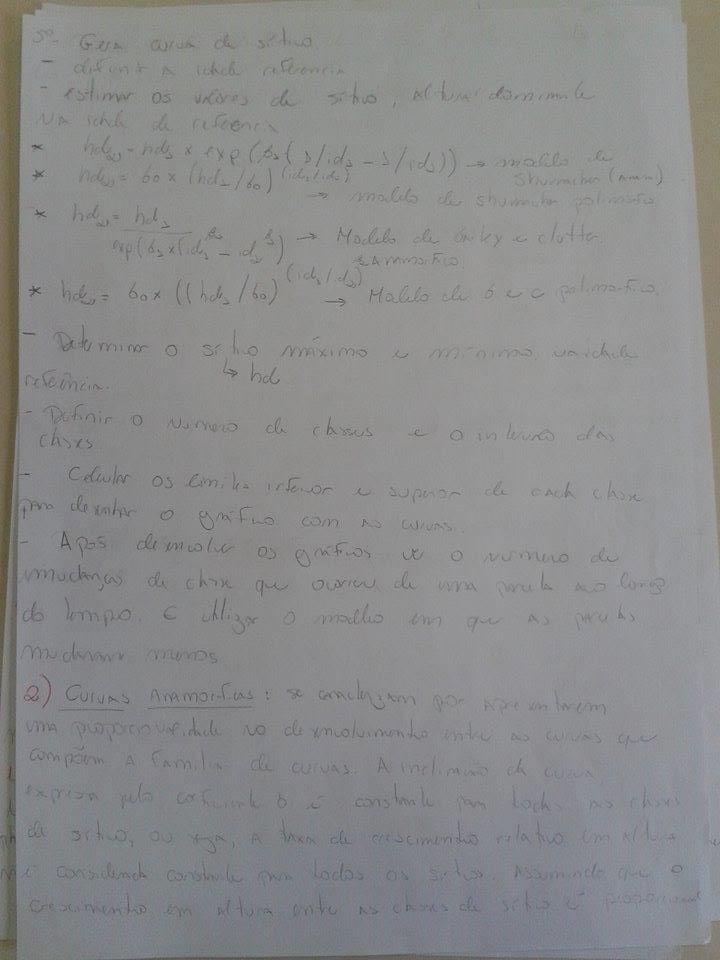 5º- Gera curva de sítio
- definir a idade referência
- estimar os valores de sítio, altura dominante
na idade de referência
* hd₂ = hd₁ x exp(β₁(1/id₂ - 1/id₁)) → modelo de
Shumacher (anam)
* hd₂ = β0 x (hd₁/β0)^(id₁/id₂)
→ modelo de shumacher polimorfico
* hd₂ = hd₁
exp(β₁x(id₁^β₂ - id₂^β₂)) → Modelo de Bailey e clutter
Anamorfico
* hd₂ = β0 x ((hd₁/β0)^(id₁/id₂) → Modelo de B e C polimorfico.
- Determinar o sítio máximo e mínimo na idade
↳ hd
referência.
- Definir o numero de classes e o intervalo das
classes
- Calcular os limites inferior e superior de cada classe
para desenhar o gráfico com as curvas.
- Após desenvolver os gráficos ve o numero de
mudanças de classe que ocorreu de uma parcela ao longo
do tempo. E utilizar o modelo em que as parcelas
mudaram menos
2) Curvas Anamorficas: se caracterizam por apresentarem
uma proporcionalidade no desenvolvimento entre as curvas que
compõem a familia de curvas. A inclinação da curva
expressa pelo coeficiente b é constante para todas as classes
de sítio, ou seja, a taxa de crescimento relativo em altura
é considerada constante para todos os sítios. Assumindo que o
crescimento em altura entre as classes de sítio é proporcional